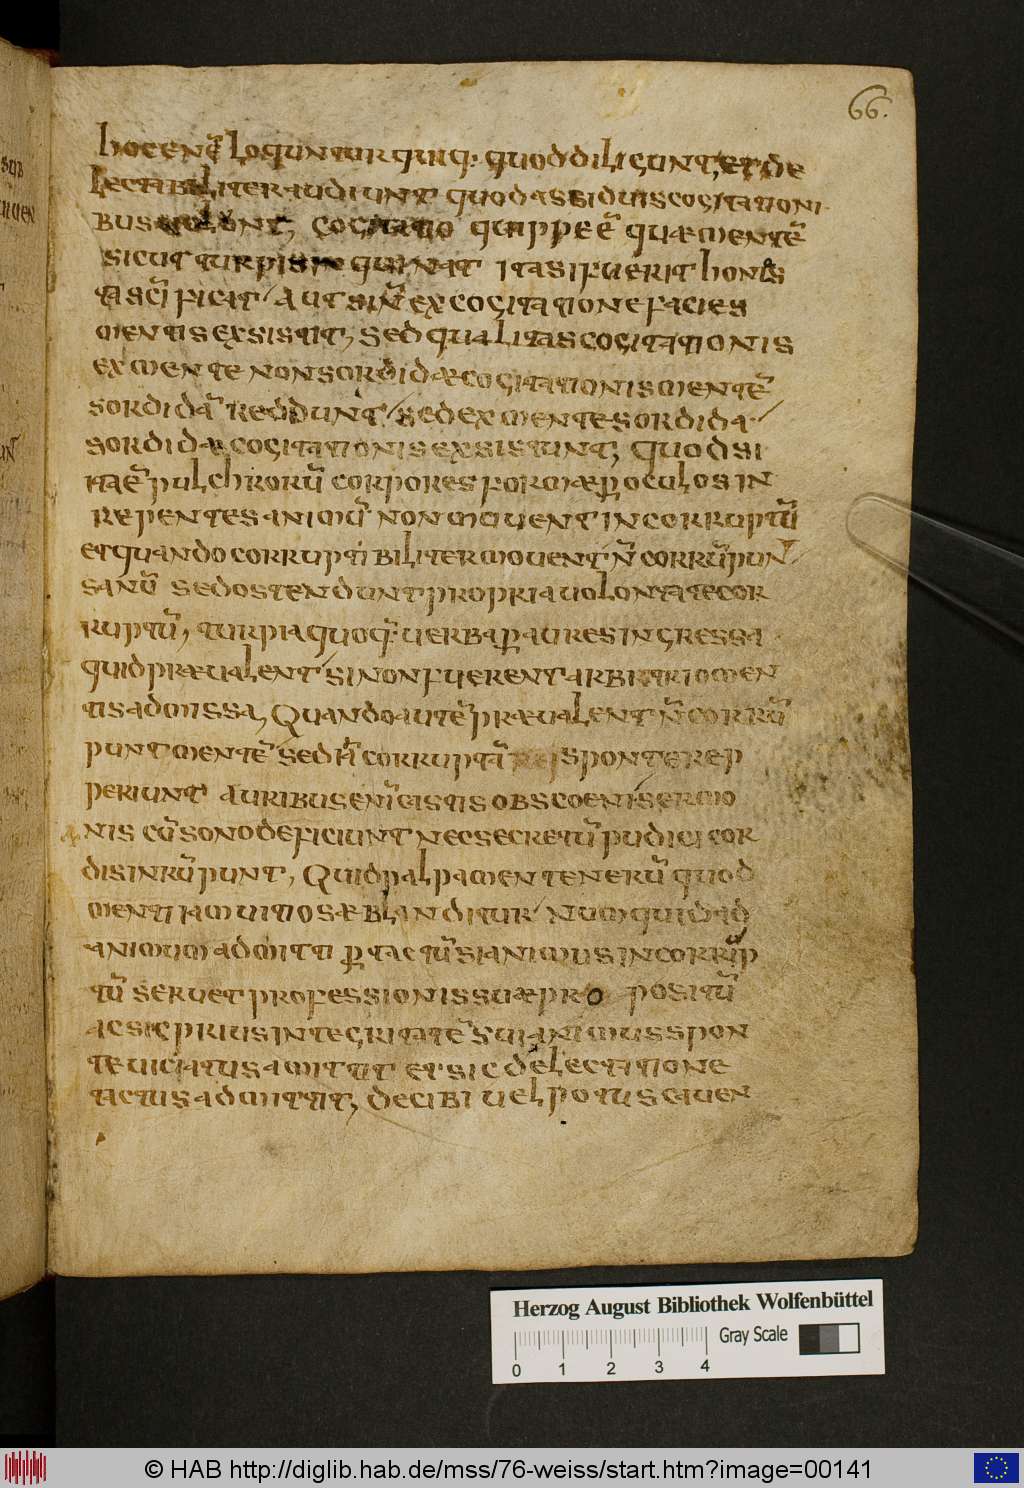 66.
hocenī loquntur quiq: quoddiligunt, etde
lectabiliter audiunt quodassiduiscogitationi
busuolunt, cogitatio quippeē quaementē
sicutturpisinquinat itasifuerithonis
tascīficit aut sinē excogitatione facies
mentisexsistit, sedqualitascogitationis
exmentenonsordidaecogitationismentē
sordidā reddunt sedexmentesordida
sordidaecogitationisexsistunt, quodsi
pulchrorū corporesformaeꝑoculosin
repentesanimū nonmouentincorruptū
etquandocorruptibilitermouent n̄ corrūpun
sanū sedostenduntpropriauolontatecor
ruptū, turpiaquoq: uerbaꝑauresingressa
quidpraeualent sinonfuerentarbitriomen
tisadmissa, Quandoautēpraeualent n̄ corrū
puntmentē sedh̄ corruptā sponterep
periunt auribusenīgistisobscoenisermo
nis cūsonodeficiunt necsecretūpudici cor
disinrūpunt, Quidpalpamenteneorū quod
menti iamuitiosaeblanditur numquidad
animumadmitti ꝑtactūsianimusincorrūp
tū seruetprofessionissuaepro positū
acsicpriusintegritatē suianimusspon
teuiciatusamittit et sic delectatione
tactusadmittit, decibi uelpotus euen
Herzog August Bibliothek Wolfenbüttel
Gray Scale
0 1 2 3 4
© HAB http://diglib.hab.de/mss/76-weiss/start.htm?image=00141